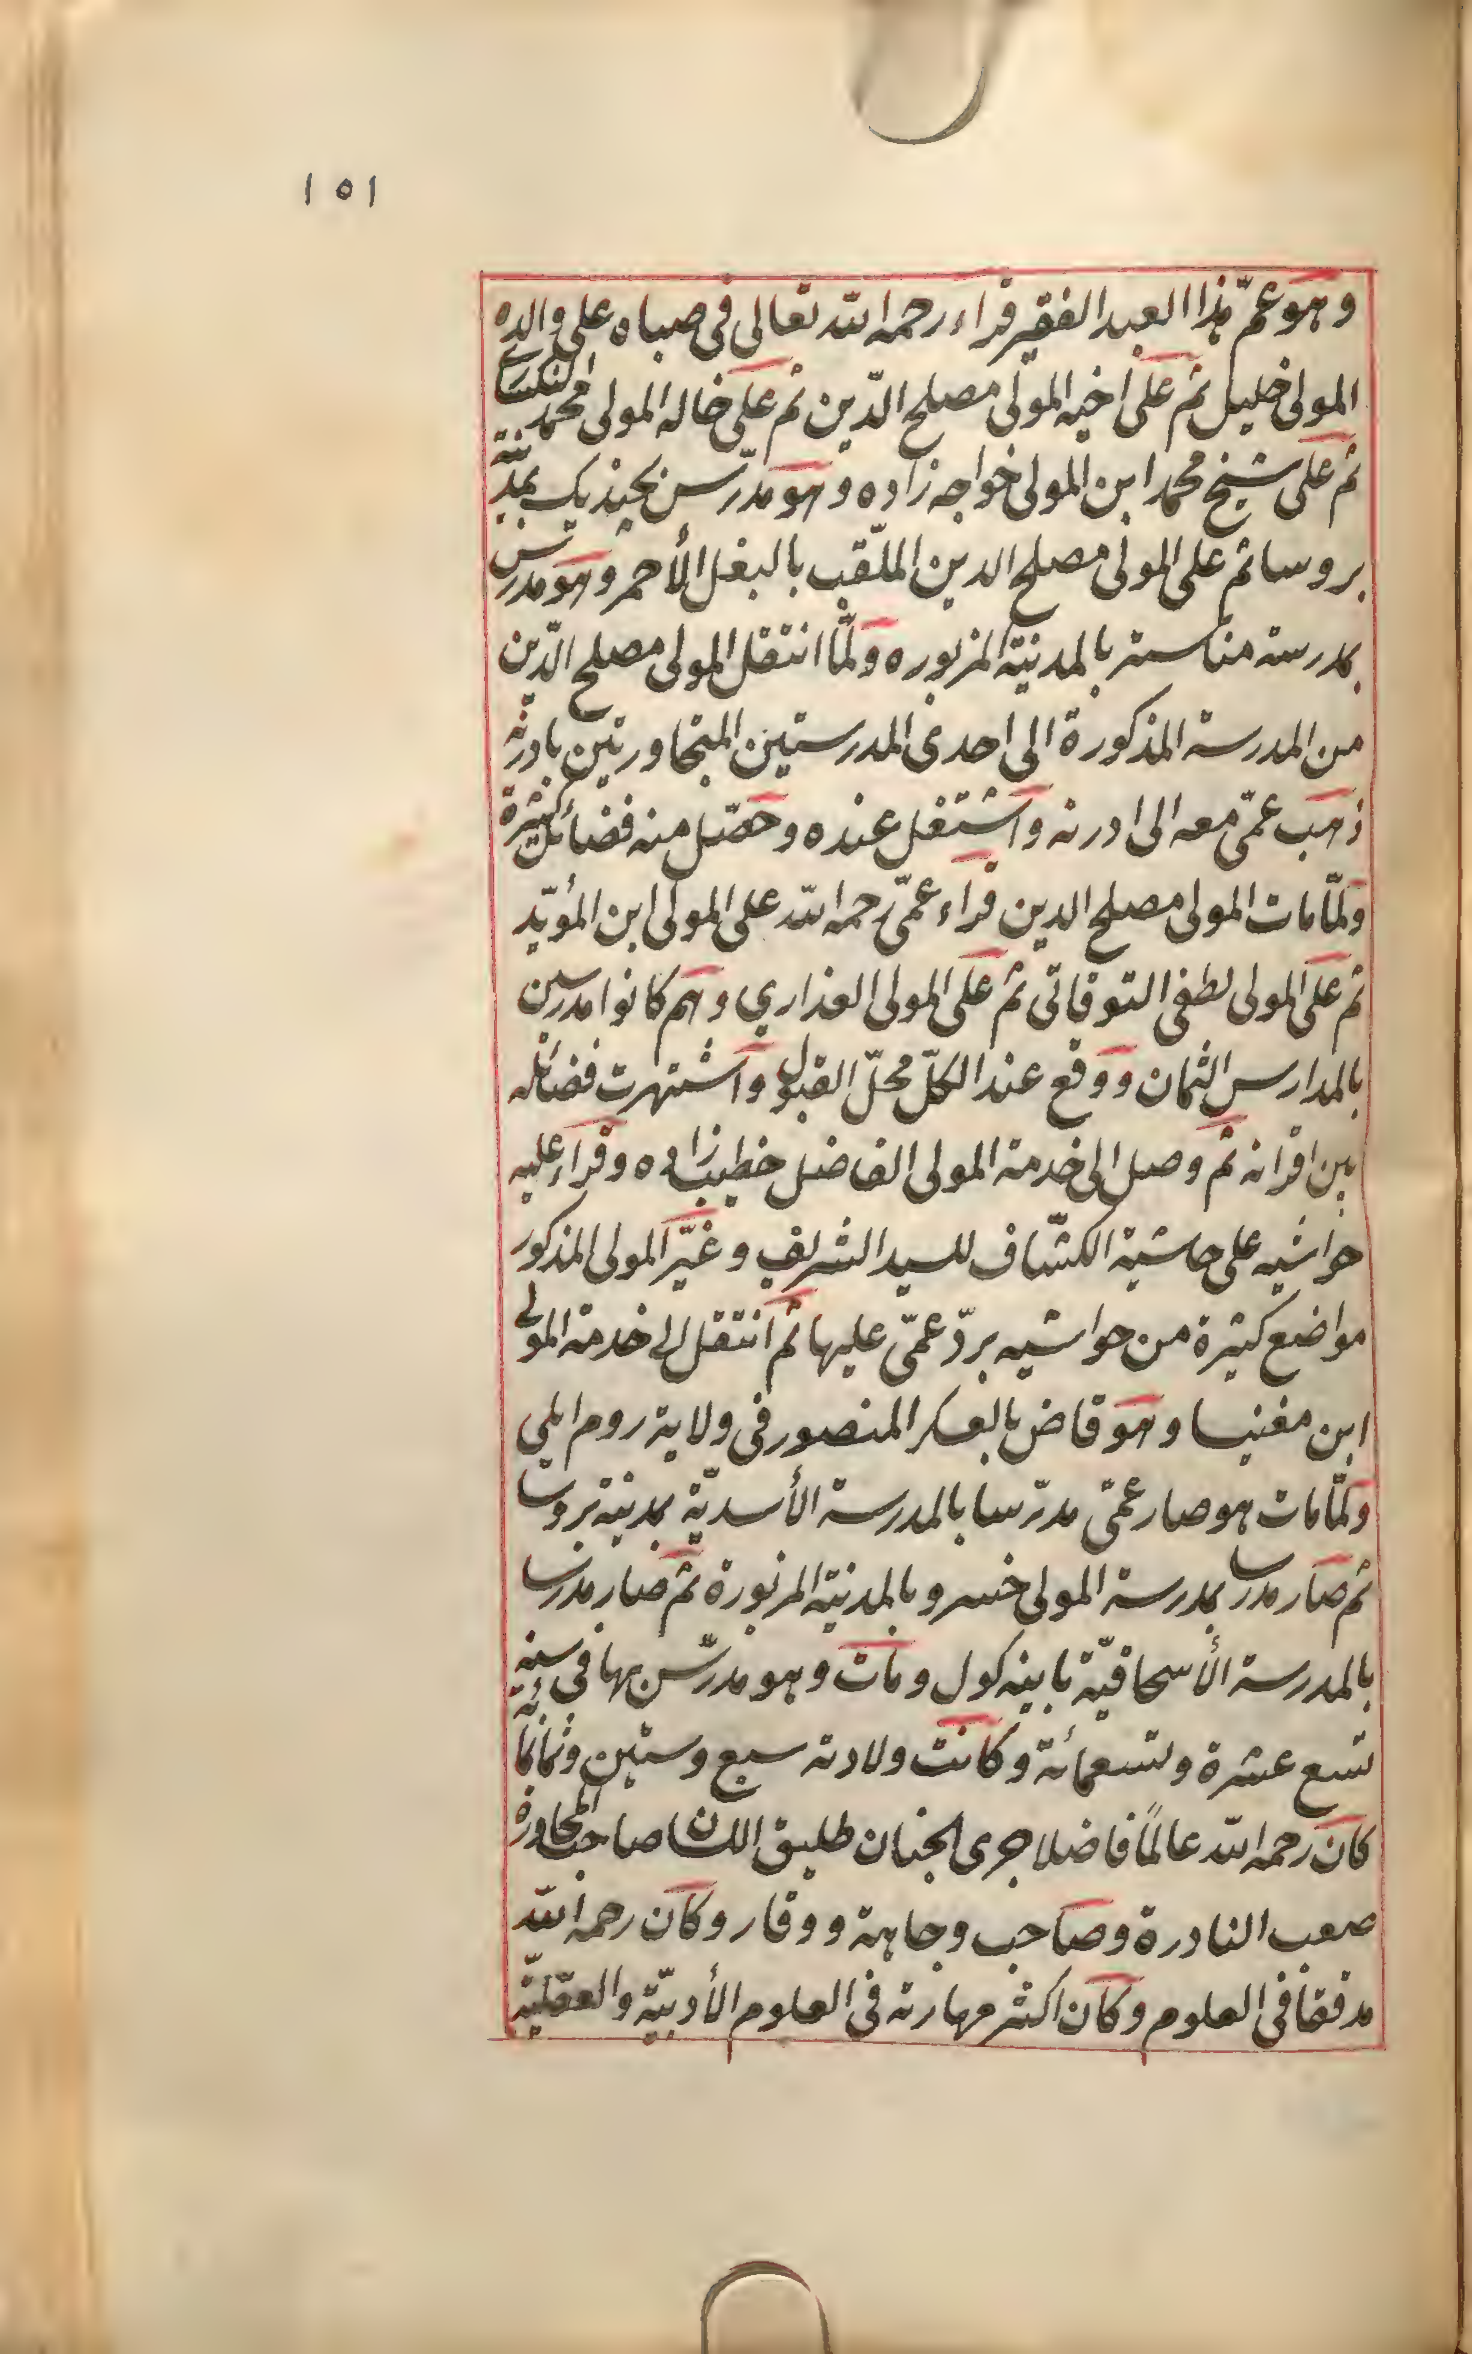 ١٥١
وهو عمّ هذا العبد الفقير قراء رحمه الله تعالى فى صباه على والده
المولى خليل ثم على اخيه المولى مصلح الدّين ثم على خاله المولى محمد النكسارى
ثم على شيخ محمد ابن المولى خواجه زاده وهو مدرّس بجنديك بمدينة
بروسا ثم على المولى مصلح الدين الملّقب بالبغل الأحمر وهو مدرس
بمدرسة مناستر بالمدينة المزبوره ولمّا انتقل المولى مصلح الدّين
من المدرسة المذكورة الى احدى المدرستين المتجاورتين بادرنه
ذهب عمّى معه الى ادرنه واشتغل عنده وحصّل منه فضائل كثيرة
ولمّا مات المولى مصلح الدين قراء عمّى رحمه الله على المولى ابن المؤيّد
ثم على المولى لطفى التوقاتى ثم على المولى العذارى وهم كانوا مدرسين
بالمدارس الثمان ووقع عند الكلّ محلّ القبول واشتهرت فضائله
بين اقرانه ثم وصل الى خدمة المولى الفاضل خطيب زاده وقراء عليه
حواشيه على حاشية الكشّاف للسيد الشريف وغيّر المولى المذكور
مواضع كثيرة من حواشيه بردّ عمّى عليها ثم انتقل الى خدمة المولى
ابن مغنيسا وهو قاض بالعسكر المنصور فى ولاية روم ايلى
ولمّا مات هو صار عمّى مدرّسا بالمدرسة الأسديّة بمدينة بروسا
ثم صار مدرسا بمدرسة المولى خسرو بالمدينة المزبورة ثم صار مدرسا
بالمدرسة الأسحاقيّة باينه كول ومات وهو مدرّس بها فى سنه
تسع عشرة وتسعمائة وكانت ولادته سبع وستين وثمانمائه
كان رحمه الله عالمًا فاضلا جرى الجنان طليق اللسان صاحب المحاورة
صعب النادرة وصاحب وجاهة ووقار وكان رحمه الله
مدققا فى العلوم وكان اكثر مهارته فى العلوم الأدبيّة والعقليّة